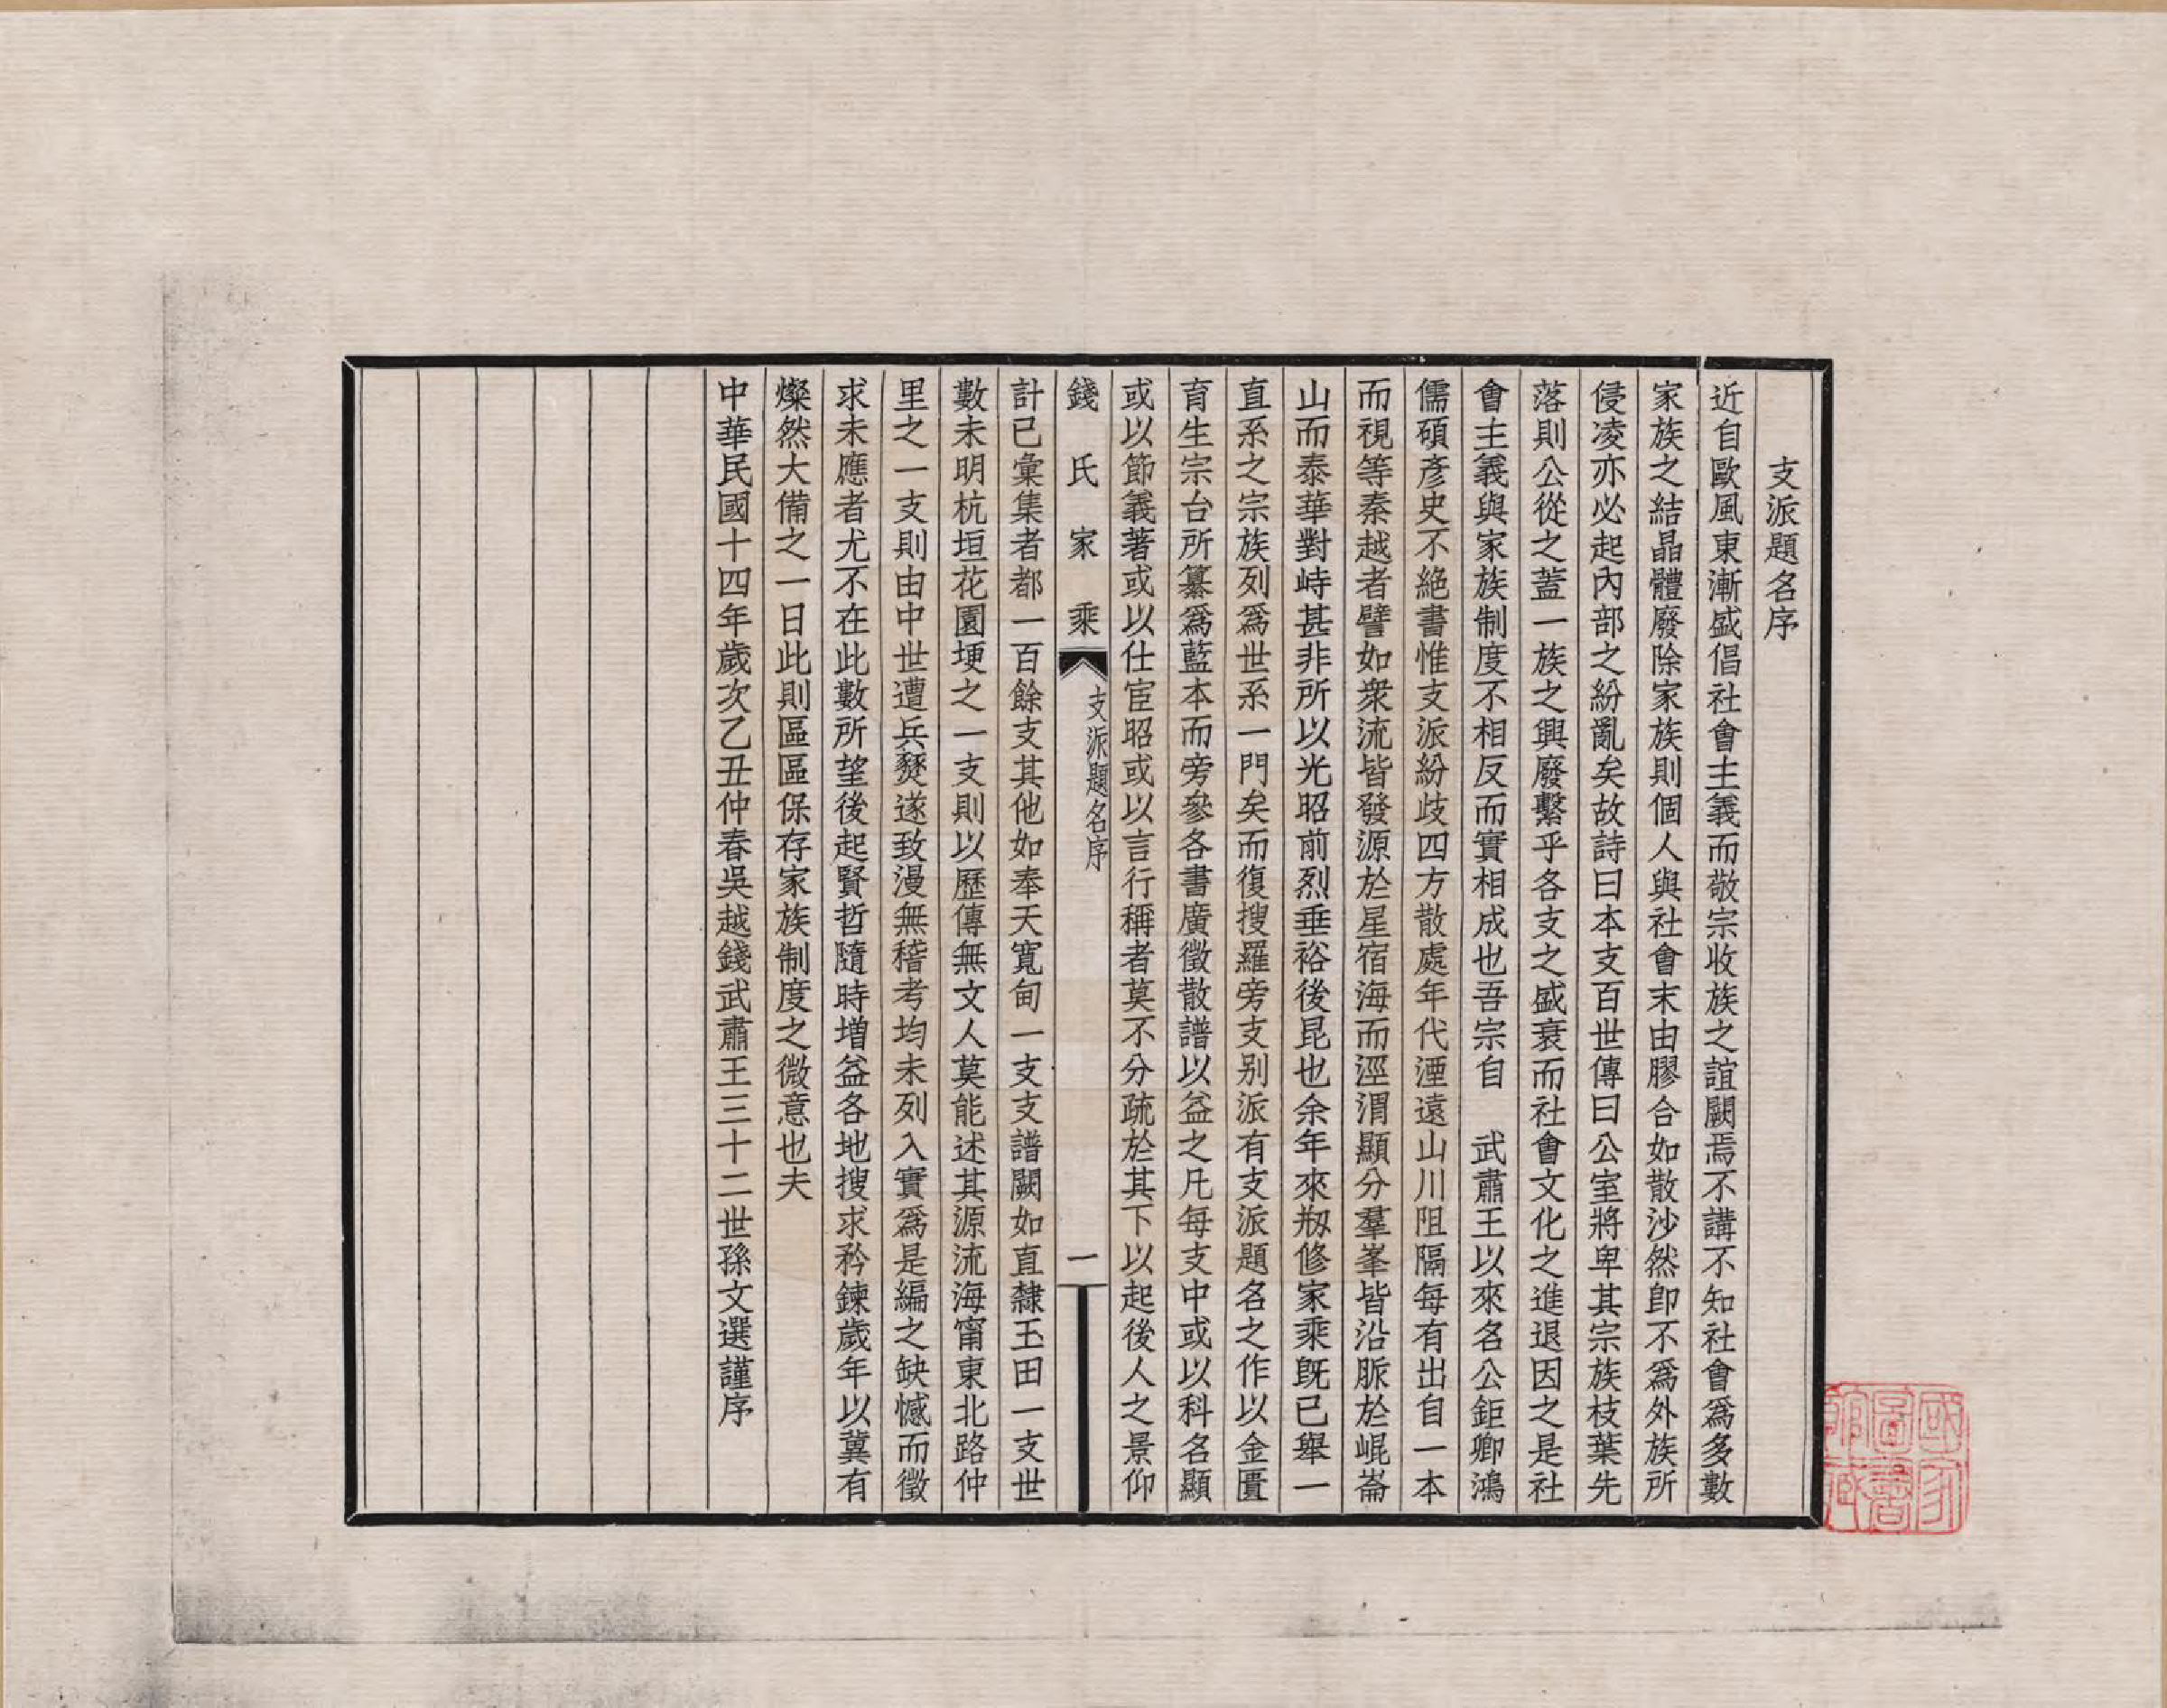 支派題名序
近自歐風東漸盛倡社會主義而敬宗收族之誼闕焉不講不知社會爲多數
家族之結晶體廢除家族則個人與社會末由膠合如散沙然卽不爲外族所
侵凌亦必起內部之紛亂矣故詩曰本支百世傳曰公室將卑其宗族枝葉先
落則公從之蓋一族之興廢繫乎各支之盛衰而社會文化之進退因之是社
會主義與家族制度不相反而實相成也吾宗自　武肅王以來名公鉅卿鴻
儒碩彥史不絕書惟支派紛歧四方散處年代湮遠山川阻隔每有出自一本
而視等秦越者譬如衆流皆發源於星宿海而涇渭顯分羣峯皆沿脈於崐崙
山而泰華對峙甚非所以光昭前烈垂裕後昆也余年來刱修家乘旣已舉一
直系之宗族列爲世系一門矣而復搜羅旁支别派有支派題名之作以金匱
育生宗台所纂爲藍本而旁參各書廣徵散譜以益之凡每支中或以科名顯
或以節義著或以仕宦昭或以言行稱者莫不分疏於其下以起後人之景仰
錢氏家乘
支派題名序
一
計已彙集者都一百餘支其他如奉天寬甸一支支譜闕如直隸玉田一支世
數未明杭垣花園埂之一支則以歷傳無文人莫能述其源流海甯東北路仲
里之一支則由中世遭兵燹遂致漫無稽考均未列入實爲是編之缺憾而徵
求未應者尤不在此數所望後起賢哲隨時增益各地搜求矜鍊歲年以冀有
燦然大備之一日此則區區保存家族制度之微意也夫
中華民國十四年歲次乙丑仲春吳越錢武肅王三十二世孫文選謹序
國家圖書館藏